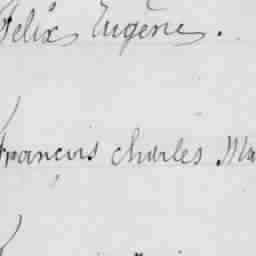 Felix Eugène.
François Charles Ma